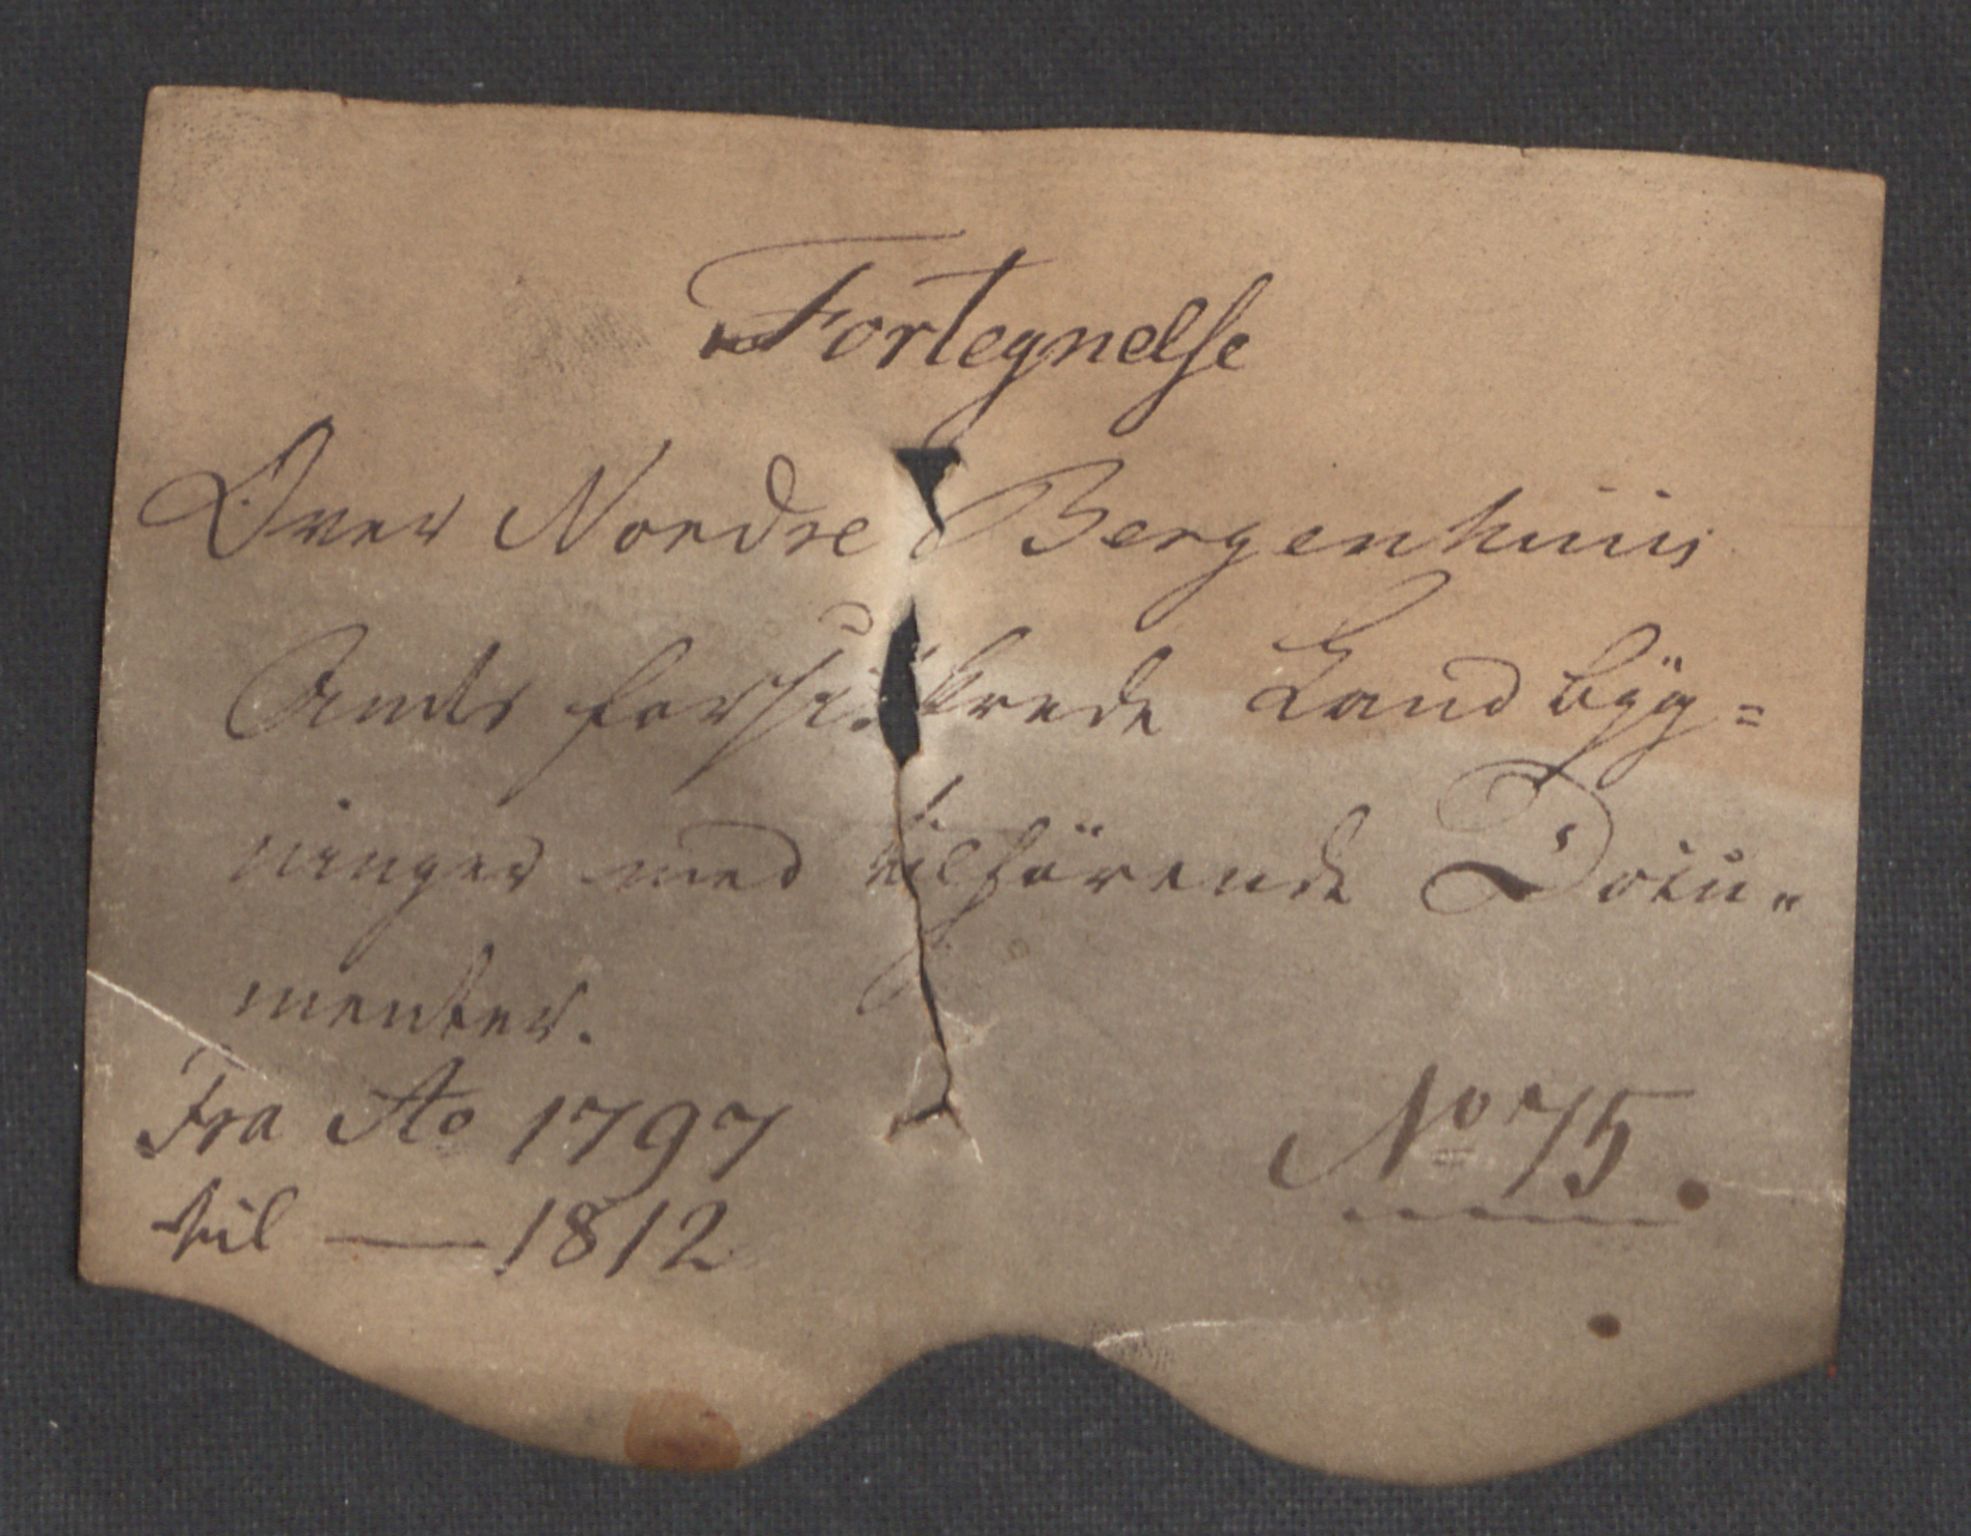 Fortegnelse
Over Nordre Bergenhuus
Amts forsikrede Landbÿg=
ninger med tilhörende Docu„
menter.
Fra Ao 1797
til — 1812
No 75.